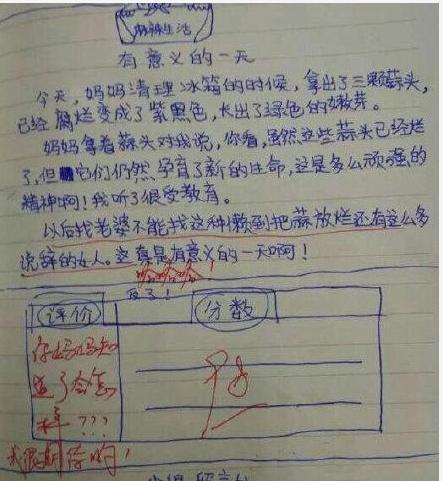 麻辣生活
有意义的一天
今天，妈妈清理冰箱的时候，拿出了三颗蒜头，
已经腐烂变成了紫黑色，长出了绿色的嫩芽。
妈妈拿着蒜头对我说，你看，虽然这些蒜头已经烂
了，但它们仍然孕育了新的生命，这是多么顽强的
精神啊！我听了很受教育。
以后找老婆不能找这种懒到把蒜放烂还有这么多
说辞的女人。这真是有意义的一天啊！
哈哈哈
反了！
评价
分数
你妈妈知
道了会怎
样???
我很期待哟！
98